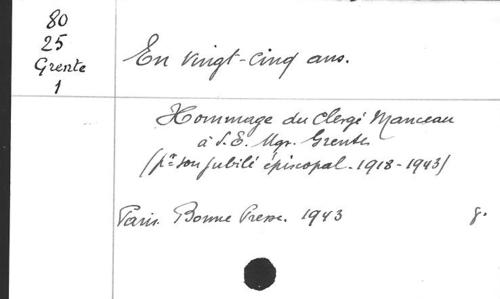 80
25
Grente
1
En vingt-cinq ans.
Hommage du Clergé Manceau
à S. E. Mgr. Grente
(pr son jubilé épiscopal. 1918-1943)
Paris. Bonne Presse. 1943
8.